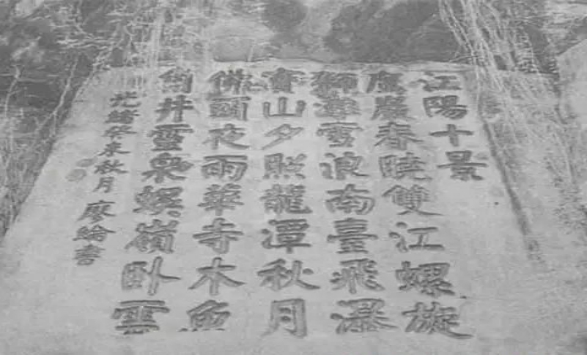 江陽十景
春曉雙江螺旋
獅灘雪浪南臺飛瀑
寶山夕照龍潭秋月
佛頭夜雨華寺木魚
劍井靈泉螺嶺臥雲
光緒癸未秋月廖綸書